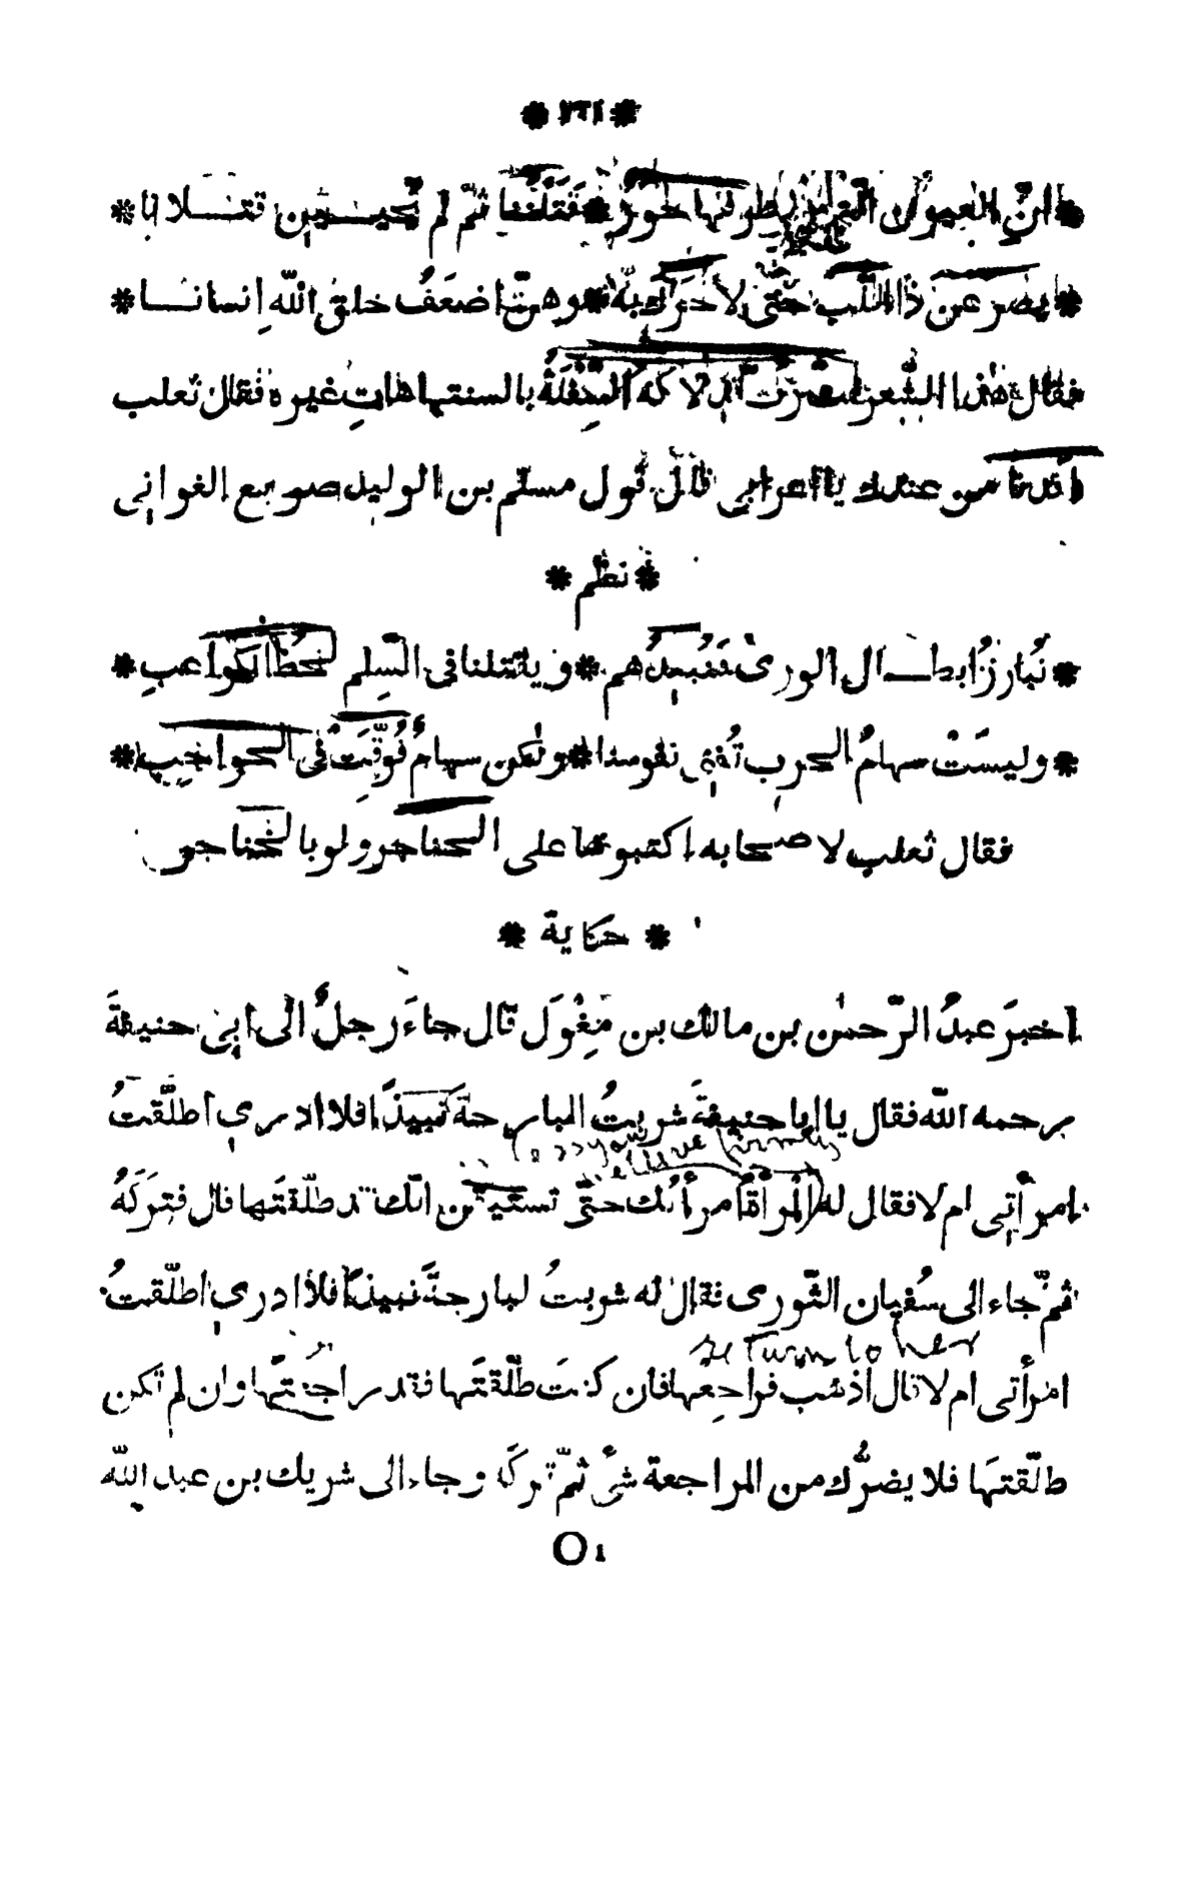 * ١٢١ *
* انّ العيون الّتي في طرفها حورٌ * قَتَلْننا ثمّ لم يُحيين قتلانا *
* يصرعن ذا اللّبّ حتّى لا حَراكَ بهِ * وهنّ اضعَفُ خلق اللّه اِنسانا *
فقال هٰذا الشّعر قد لاكهُ السِّفْلَةُ بالسنتها هاتِ غيره فقال ثعلب
افدنا من عندك يا اعرابي قال قول مسلم بن الوليد صريع الغواني
* نظم *
* نُبارزُ ابطال الورى فنُبيدُهم * ويقتلنا في السِّلم لحظُ الكواعبِ *
* وليسَتْ سهامُ الحربِ تُفني نفوسنا * ولٰكن سهامٌ فُوِّقَتْ في الحواجبِ *
فقال ثعلب لاصحابه اكتبوها على الحناجر ولو بالخناجر
* حكاية *
اخبرَ عبدُ الرّحمٰن بن مالك بن مِغْوَل قال جاءَ رجلٌ الى ابي حنيفةَ
رحمه اللّه فقال يا ابا حنيفةَ شربتُ البارحةَ نبيذًا فلا ادري اطلّقتُ
امرأتي ام لا فقال له المرأةُ امرأتُك حتّى تستيقن انّك قد طلّقتَها قال فتركَهُ
ثمّ جاء الى سُفيان الثّوري فقال له شربتُ البارحةَ نبيذًا فلا ادري اطلّقتُ
return to her
امرأتي ام لا قال اذهب فراجِعْها فان كنتَ طلّقتَها فقد راجعتَها وان لم تكن
طلّقتَها فلا يضرُّك من المراجعة شئٌ ثمّ تركَه وجاء الى شريك بن عبد اللّه
O 1